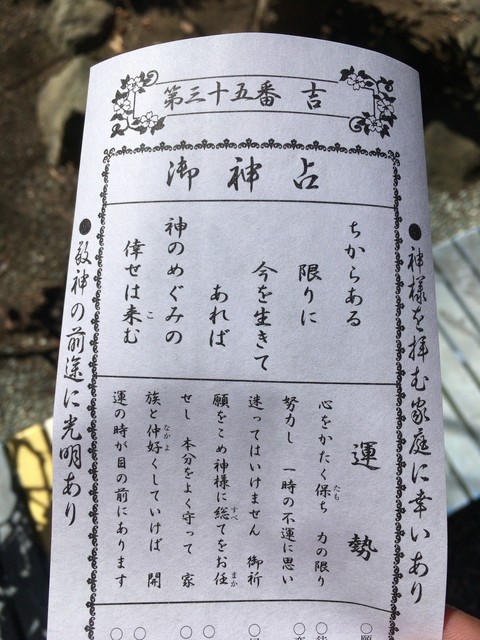 第三十五番 吉
御神占
●神様を拝む家庭に幸いあり
ちからある
限りに
今を生きて
あれば
神のめぐみの
倖せは来む
こ
運勢
心をかたく保ち 力の限り
たも
努力し 一時の不運に思い
迷ってはいけません 御祈
願をこめ神様に総てをお任
すべ
まか
せし 本分をよく守って 家
族と仲好くしていけば 開
なかよ
運の時が目の前にあります
●敬神の前途に光明あり
○願